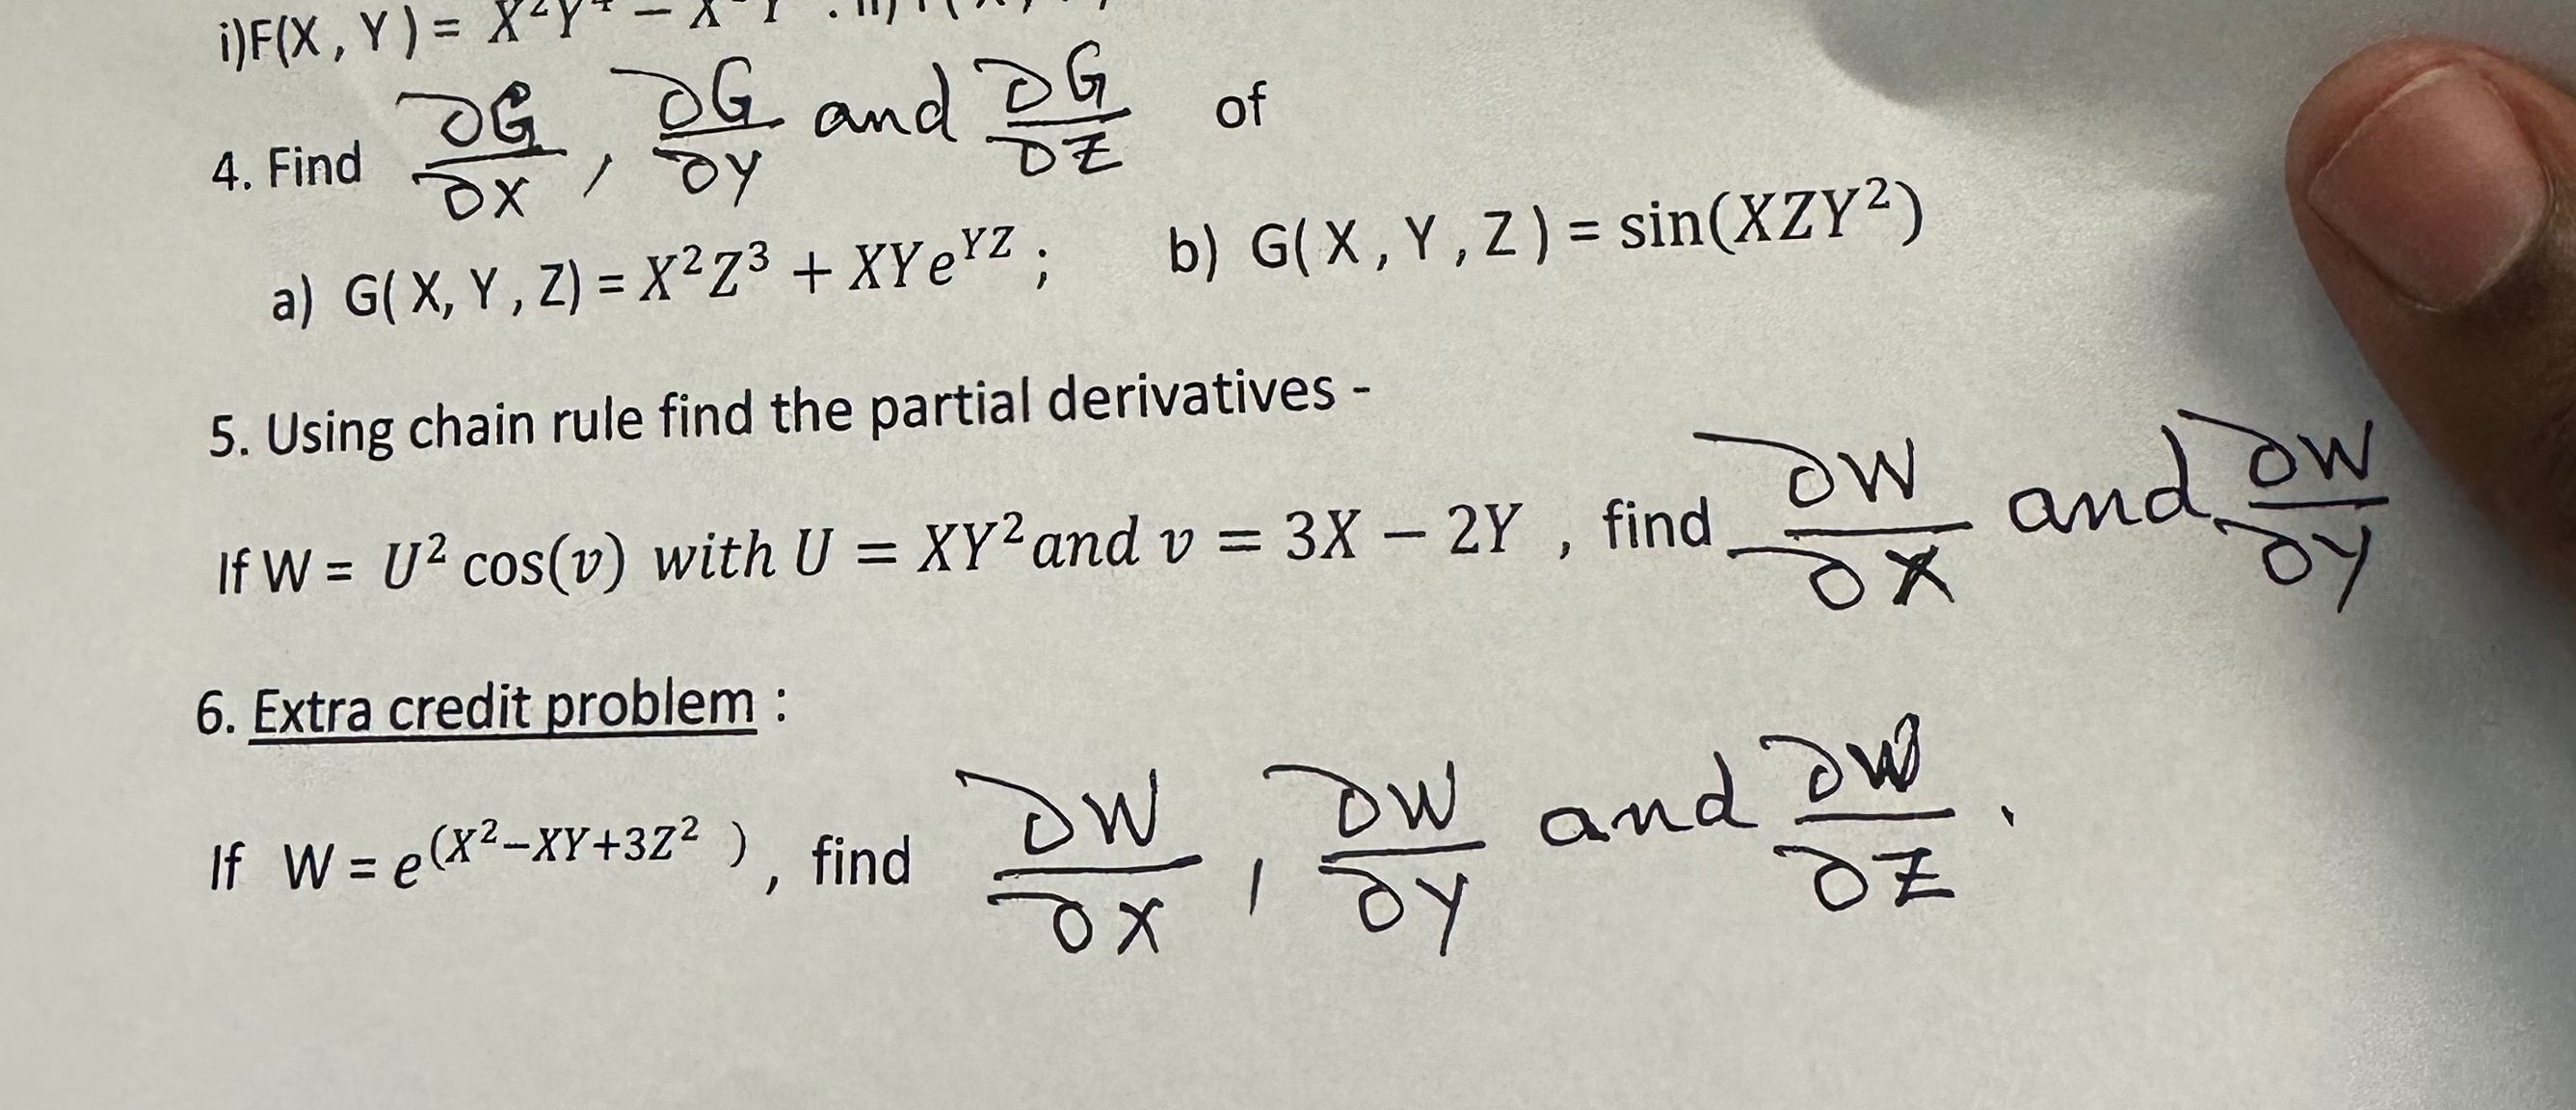 i)F(X , Y ) = X²Y⁴ −
4. Find ∂G/∂X , ∂G/∂Y and ∂G/∂Z of
a) G( X, Y , Z) = X²Z³ + XYe^{YZ} ; b) G( X , Y , Z ) = sin(XZY²)
5. Using chain rule find the partial derivatives -
If W = U² cos(v) with U = XY² and v = 3X − 2Y , find ∂W/∂X and ∂W/∂Y
6. Extra credit problem :
If W = e^{(X²−XY+3Z² )} , find ∂W/∂X , ∂W/∂Y and ∂W/∂Z .